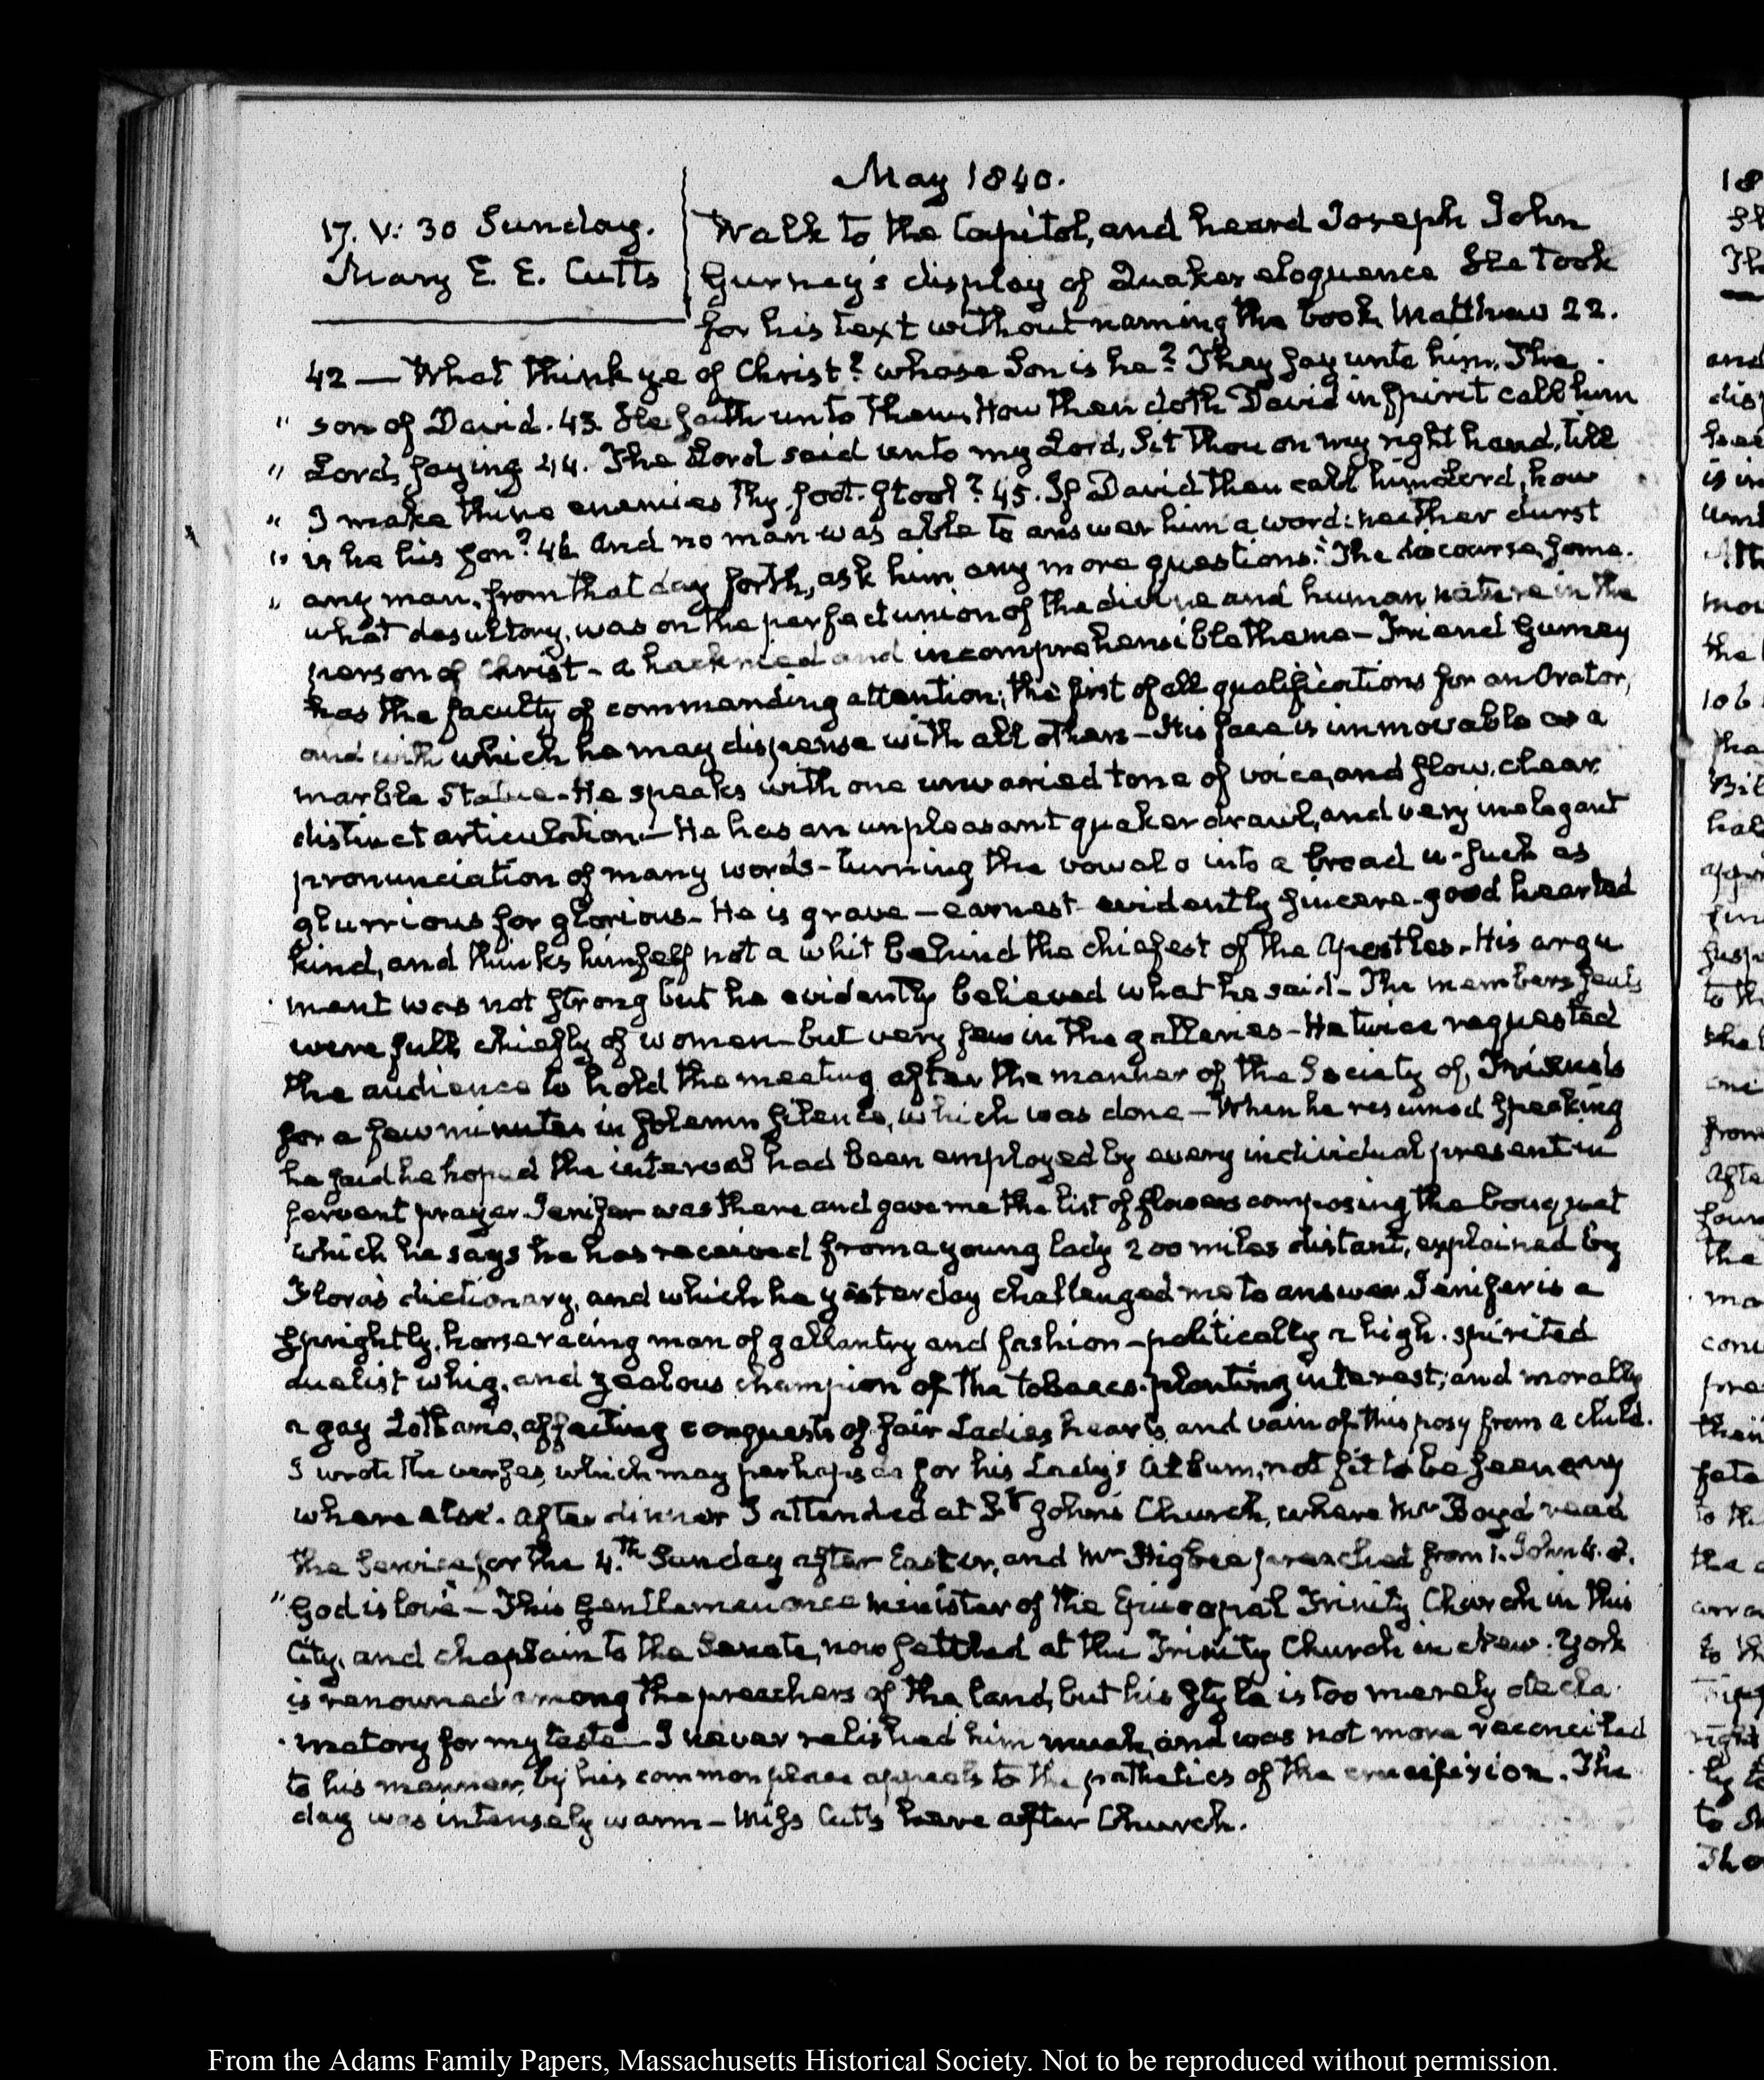 May 1840.
17. V: 30 Sunday.
Mary E. E. Cutts
Walk to the Capitol, and heard Joseph John
Gurney's display of Quaker eloquence He took
for his text without naming the book Matthew 22.
42 — What think ye of Christ? whose Son is he? They say unto him, The
" son of David. 43. He saith unto them, How then doth David in spirit call him
" Lord, saying 44. The Lord said unto my Lord, Sit thou on my right hand, till
" I make thine enemies thy foot-stool? 45. If David then call him Lord, how
" is he his son? 46 and no man was able to answer him a word: neither durst
" any man, from that day forth, ask him any more questions." The discourse, some-
what desultory, was on the perfect union of the divine and human nature in the
person of Christ - a hacknied and incomprehensible theme - Friend Gurney
has the faculty of commanding attention; the first of all qualifications for an Orator,
and with which he may dispense with all others - His face is unmovable as a
marble Statue - He speaks with one unvaried tone of voice, and slow, clear
distinct articulation - He has an unpleasant quaker drawl, and very inelegant
pronunciation of many words - turning the vowel o into a broad u - such as
glurrious for glorious - He is grave - earnest - evidently sincere - good hearted
kind, and thinks himself not a whit behind the chiefest of the Apostles - His argu
ment was not strong but he evidently believed what he said - The members seats
were full, chiefly of women - but very few in the galleries - He twice requested
the audience to hold the meeting after the manner of the Society of, Friends
for a few minutes in solemn silence, which was done - When he resumed speaking
he said he hoped the interval had been employed by every individual present in
fervent prayer. Jenifer was there and gave me the list of flowers composing the bouquet
which he says he has received from a young lady 200 miles distant, explained by
Flora's dictionary, and which he yesterday challenged me to answer. Jenifer is a
sprightly, horse racing man of gallantry and fashion - politically a high-spirited
duelist whig, and zealous champion of the tobacco-planting interest; and morally
a gay Lothario, affecting conquests of fair Ladies hearts, and vain of this posy from a child.
I wrote the verses, which may perhaps do for his Lady's Album, not fit to be seen any
where else. After dinner I attended at St. John's Church, where Mr Boyd read
the Service for the 4.th Sunday after Easter, and Mr Higbee preached from 1. John 4. 8.
" God is love - This Gentleman once minister of the Episcopal Trinity Church in this
City, and chaplain to the Senate, now settled at the Trinity Church in New-York
is renowned among the preachers of the land, but his style is too merely decla-
matory for my taste - I never relished him much, and was not more reconciled
to his manner, by his common place appeals to the pathetics of the crucifixion. The
day was intensely warm - Miss Cutts here after Church.
From the Adams Family Papers, Massachusetts Historical Society. Not to be reproduced without permission.